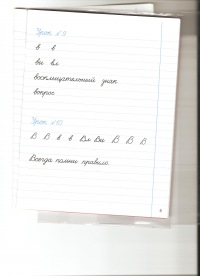 Урок №9
в в
вы вл
восклицательный знак
вопрос
Урок №10
В В в в Вл Вы В В В
Всегда помни правила.